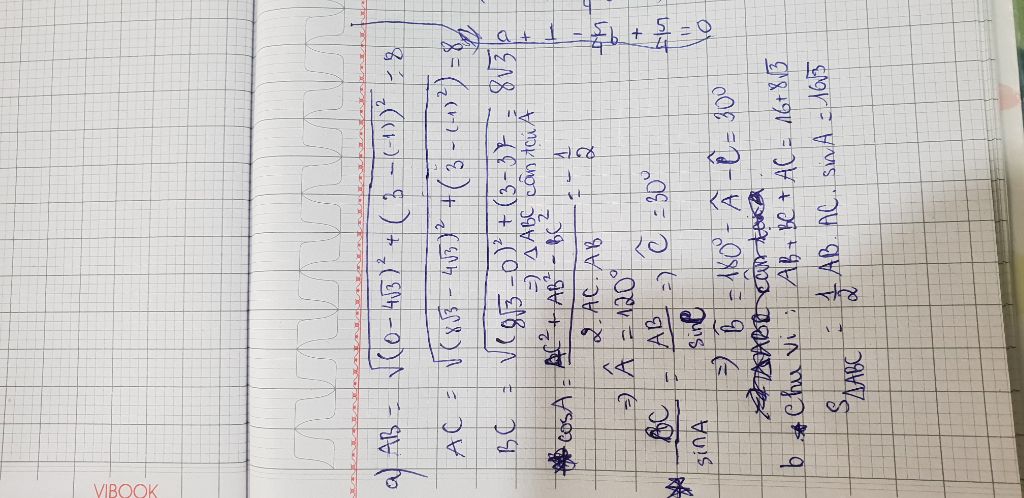 a + 1 - 5/4 b + 5/4 = 0
a) AB = √(0 - 4√3)² + (3 - (-1))² = 8
AC = √(8√3 - 4√3)² + (3 - (-1)²) = 8
BC = √(8√3 - 0)² + (3 - 3)² = 8√3
=> ΔABC cân tại A
* cosA = (AC² + AB² - BC²)/(2. AC. AB) = -1/2
=> Â = 120°
* BC/sinA = AB/sinC => Ĉ = 30°
=> B̂ = 180° - Â - Ĉ = 30°
b * Chu vi : AB + BC + AC = 16 + 8√3
SΔABC = 1/2 AB. AC. sinA = 16√3
VIBOOK